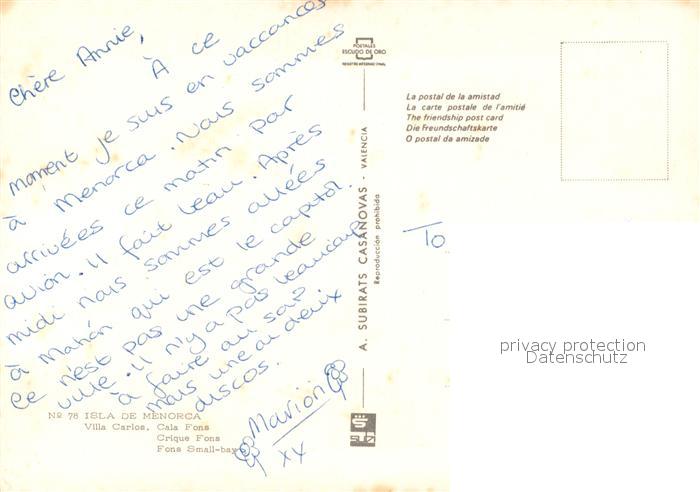 Chère Annie,
À ce
moment je suis en vaccances
à Menorca. Nous sommes
arrivées ce matin par
avion. Il fait beau. Après
midi nous sommes allées
à Mahón qui est le capitol.
Ce n'est pas une grande
ville. Il n'y a pas beaucoup
à faire au so?
mais une ou deux
discos.
Marion
xx
Nº 78 ISLA DE MENORCA
Villa Carlos, Cala Fons
Crique Fons
Fons Small-bay
POSTALES
ESCUDO DE ORO
REGISTRO INTERNACIONAL
A. SUBIRATS CASANOVAS - VALENCIA
Reproducción prohibida
La postal de la amistad
La carte postale de l'amitié
The friendship post card
Die Freundschaftskarte
O postal da amizade
10
privacy protection
Datenschutz